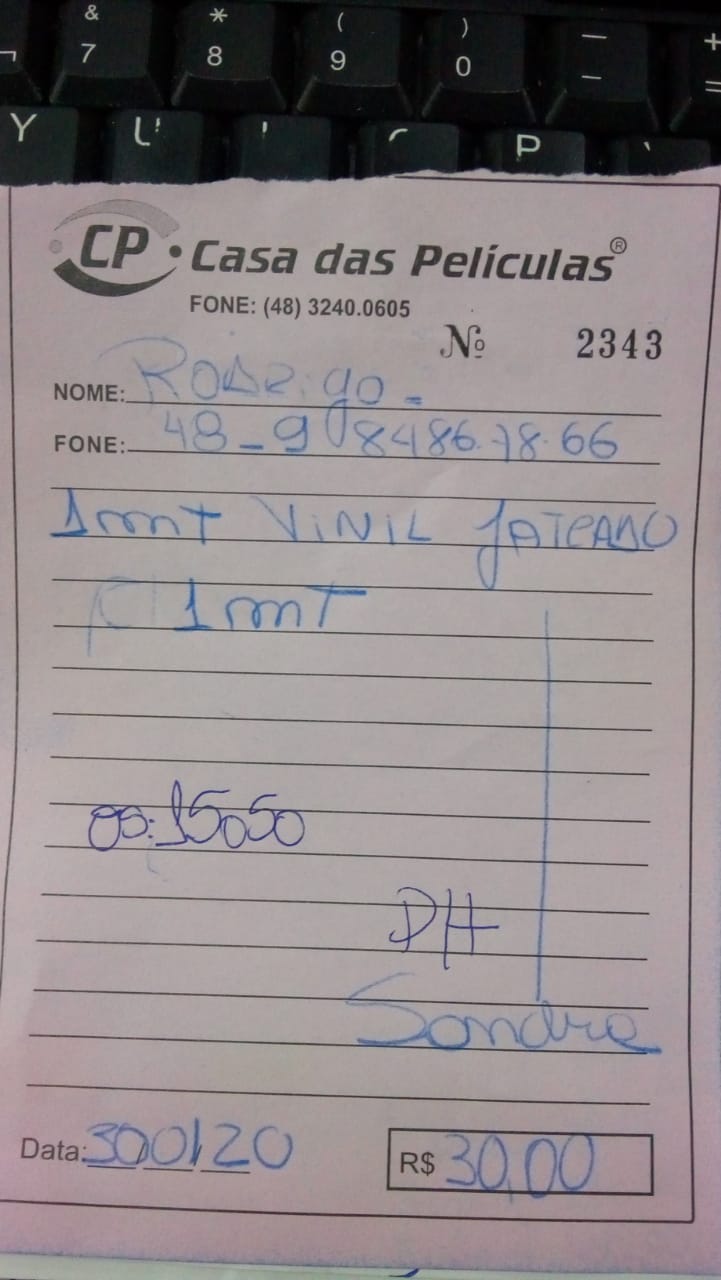 & * ( ) — +
7 8 9 0 _ =
Y U P
CP • Casa das Películas®
FONE: (48) 3240.0605
Nº 2343
NOME: Rodrigo
FONE: 48_9 8486.78.66
1 mt VINIL JATEADO
C/ 1 mt
OS: 15050
DH
Sandra
Data: 30/01/20
R$ 30,00